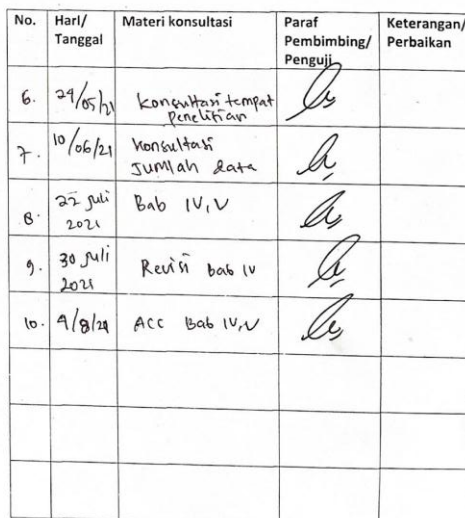 No. Hari/ Tanggal Materi konsultasi Paraf Pembimbing/ Penguji Keterangan/ Perbaikan
6. 29/05/21 Konsultasi tempat penelitian
7. 10/06/21 Konsultasi Jumlah data
8. 22 Juli 2021 Bab IV, V
9. 30 Juli 2021 Revisi bab IV
10. 9/8/21 ACC Bab IV, V